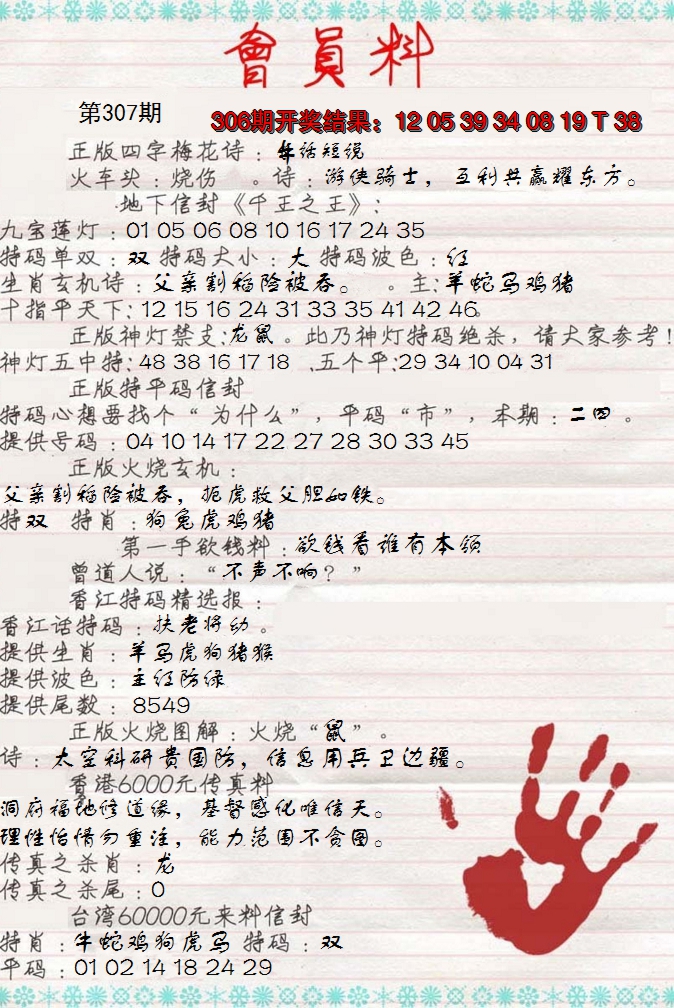 會員料
第307期
306期开奖结果：12 05 39 34 08 19 T 38
正版四字梅花诗：长话短说
火车头：烧伤 。诗：游侠骑士，互利共赢耀东方。
地下信封《千王之王》：
九宝莲灯：01 05 06 08 10 16 17 24 35
特码单双：双 特码大小：大 特码波色：红
生肖玄机诗：父亲割稻险被吞。 。主：羊蛇马鸡猪
十指平天下：12 15 16 24 31 33 35 41 42 46。
正版神灯禁支：龙鼠。此乃神灯特码绝杀，请大家参考！
神灯五中特：48 38 16 17 18 .五个平：29 34 10 04 31
正版特平码信封
特码心想要找个“为什么”，平码“市”，本期：二四。
提供号码：04 10 14 17 22 27 28 30 33 45
正版火烧玄机：
父亲割稻险被吞，扼虎救父胆如铁。
特双 特肖：狗兔虎鸡猪
第一手欲钱料：欲钱看谁有本领
曾道人说：“不声不响？”
香江特码精选报：
香江话特码：扶老将幼。
提供生肖：羊马虎狗猪猴
提供波色：主红防绿
提供尾数：8549
正版火烧图解：火烧“鼠”。
诗：太空科研贵国防，信息用兵卫边疆。
香港6000元传真料
洞府福地修道缘，基督感化唯信天。
理性怡情勿重注，能力范围不贪图。
传真之杀肖：龙
传真之杀尾：0
台湾60000元来料信封
特肖：牛蛇鸡狗虎马 特码：双
平码：01 02 14 18 24 29